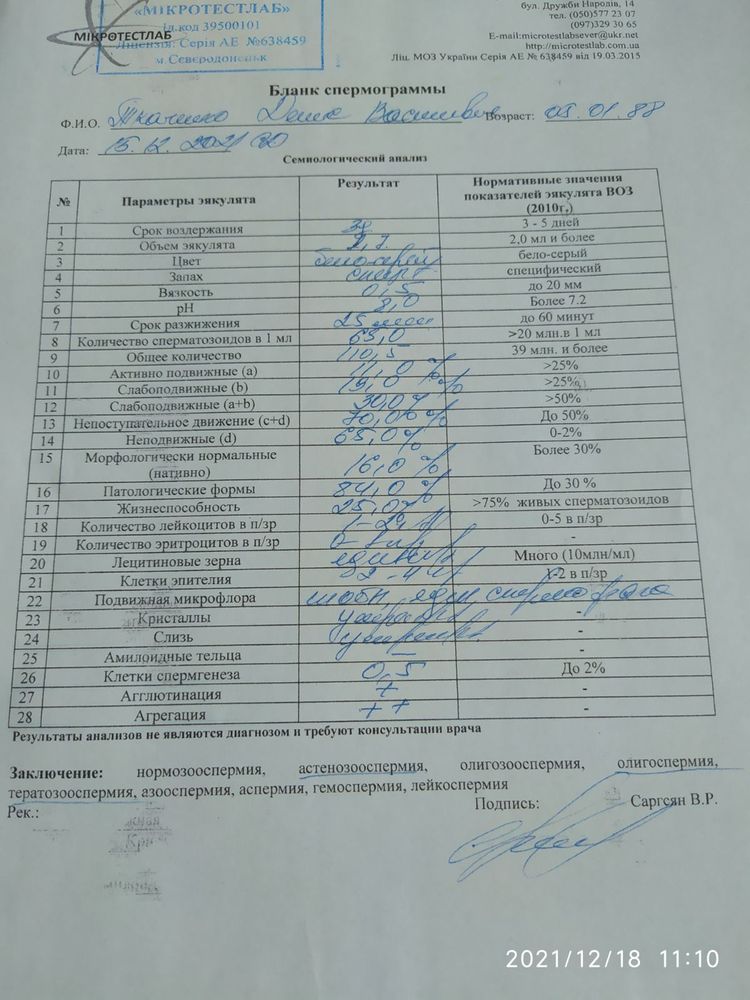 «МІКРОТЕСТЛАБ»
ід.код 39500101
Ліцензія: Серія АЕ №638459
м.Сєвєродонецьк
МІКРОТЕСТЛАБ
бул. Дружби Народів, 14
тел. (050)577 23 07
(097)329 30 65
E-mail:microtestlabsever@ukr.net
http://microtestlab.com.ua
Ліц. МОЗ України Серія АЕ № 638459 від 19.03.2015
Бланк спермограммы
Ф.И.О. Ткаченко Васильевич Возраст: 05.01.88
Дата: 15.12.2021
Семиологический анализ
№ Параметры эякулята Результат Нормативные значения показателей эякулята ВОЗ (2010г.)
1 Срок воздержания 3 - 5 дней
2 Объем эякулята 2,0 мл и более
3 Цвет бело-серый бело-серый
4 Запах специфический
5 Вязкость 0,5 до 20 мм
6 рН 8,0 Более 7.2
7 Срок разжижения 25 мин до 60 минут
8 Количество сперматозоидов в 1 мл 65,0 >20 млн.в 1 мл
9 Общее количество 110,5 39 млн. и более
10 Активно подвижные (a) 11,0 % >25%
11 Слабоподвижные (b) 19,0 % >25%
12 Слабоподвижные (a+b) 30,0% >50%
13 Непоступательное движение (c+d) 70,0% До 50%
14 Неподвижные (d) 65,0% 0-2%
15 Морфологически нормальные (нативно) 16,0 % Более 30%
16 Патологические формы 84,0 % До 30 %
17 Жизнеспособность 25,0% >75% живых сперматозоидов
18 Количество лейкоцитов в п/зр 1-2 0-5 в п/зр
19 Количество эритроцитов в п/зр 0-1 -
20 Лецитиновые зерна Много (10млн/мл)
21 Клетки эпителия 2-4 1-2 в п/зр
22 Подвижная микрофлора
23 Кристаллы -
24 Слизь -
25 Амилоидные тельца - -
26 Клетки спермгенеза 0,5 До 2%
27 Агглютинация + -
28 Агрегация ++ -
Результаты анализов не являются диагнозом и требуют консультации врача
Заключение: нормозооспермия, астенозооспермия, олигозооспермия, олигоспермия,
тератозооспермия, азооспермия, аспермия, гемоспермия, лейкоспермия
Рек.: Подпись: Саргсян В.Р.
2021/12/18 11:10